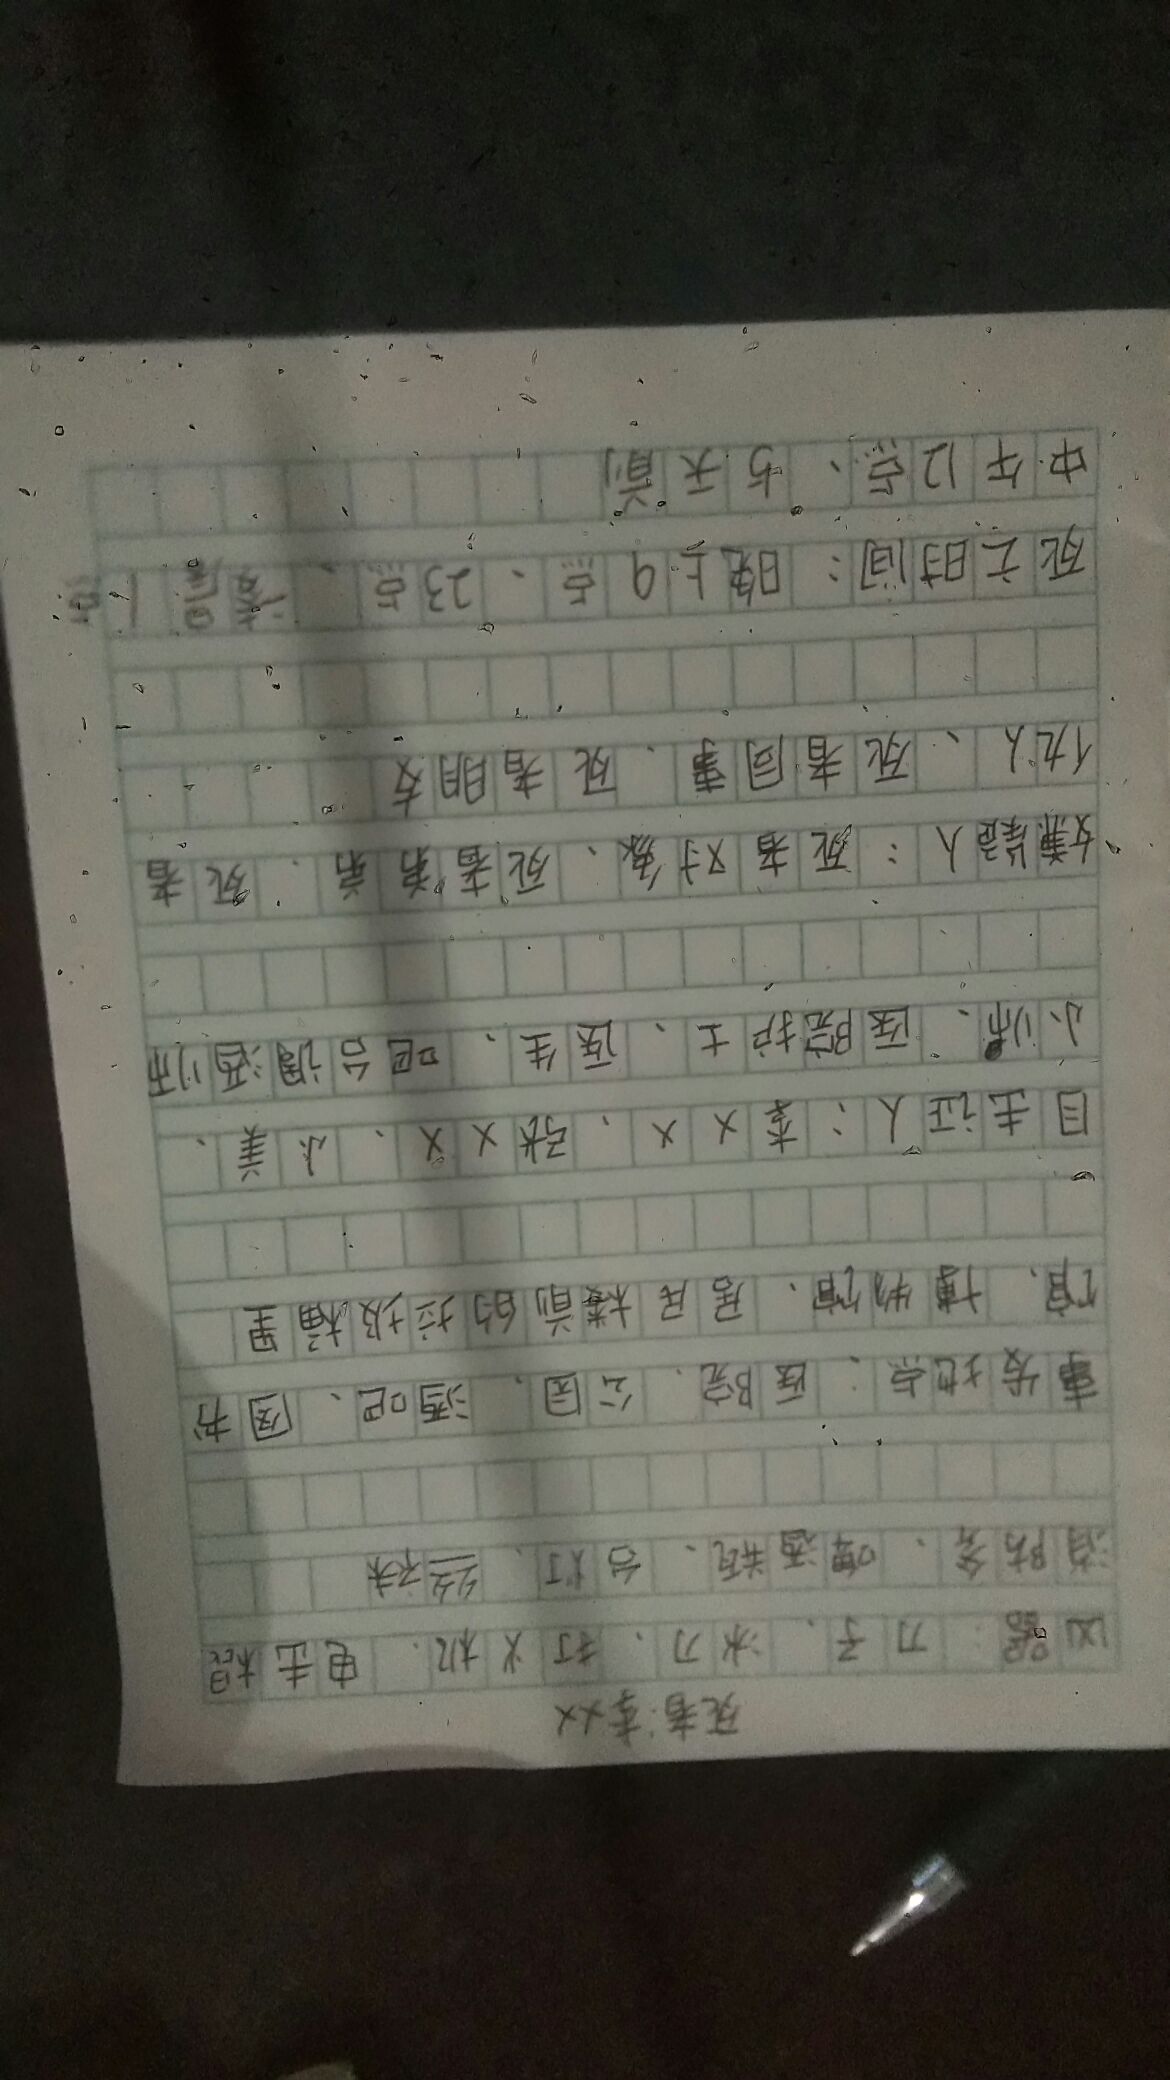 死者:李xx
凶器 刀子、冰刀、打火机、电击棍
消防斧、啤酒瓶、台灯、丝袜
事发地点:医院、公园、酒吧、图书
馆、博物馆、居民楼前的垃圾桶里
目击证人:李xx、张xx、小美、
小帅、医院护士、医生、吧台调酒师
嫌疑人:死者对象、死者弟弟、死者
仇人、死者同事、死者朋友
死亡时间:晚上9点、23点、凌晨1点
中午12点、5天前